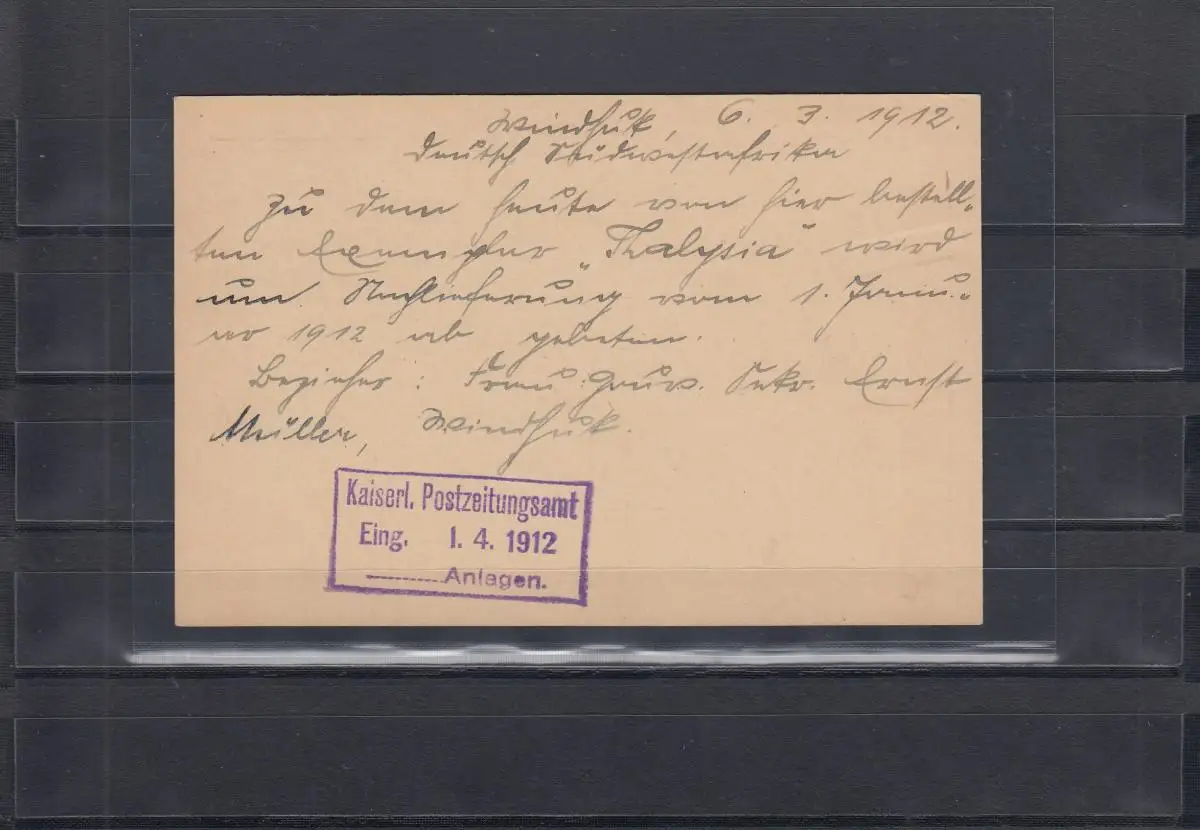 Windhuk, 6. 3. 1912.
Deutsch Südwestafrika
Zu dem heute von hier bestell-
ten Exemplar „Thalysia" wird
um Nachlieferung vom 1. Janu-
ar 1912 ab gebeten.
Bezieher: Frau Gouv. Sekr. Ernst
Müller, Windhuk.
Kaiserl. Postzeitungsamt
Eing. 1. 4. 1912
Anlagen.